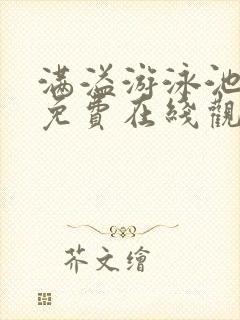 满溢游泳池
免費在綫觀
芥文繪